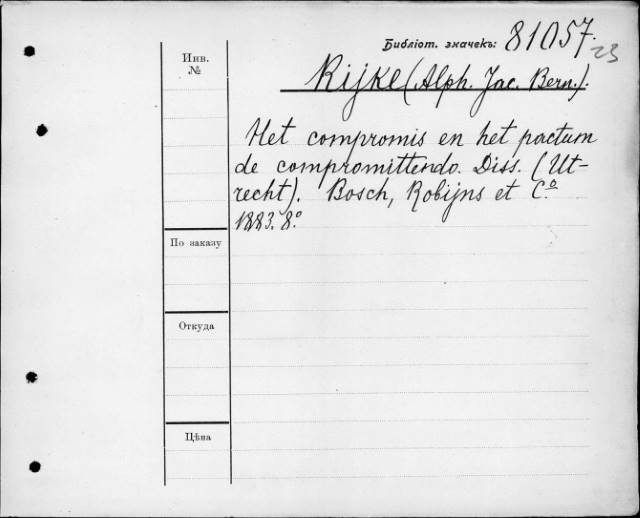 Библіот. значекъ: 81057.
23
Инв.
№
Rijke (Alph. Jac. Bern.).
Het compromis en het pactum
de compromittendo. Diss. (Ut-
recht). Bosch, Robijns et Cº
1883. 8º
По заказу
Откуда
Цѣна